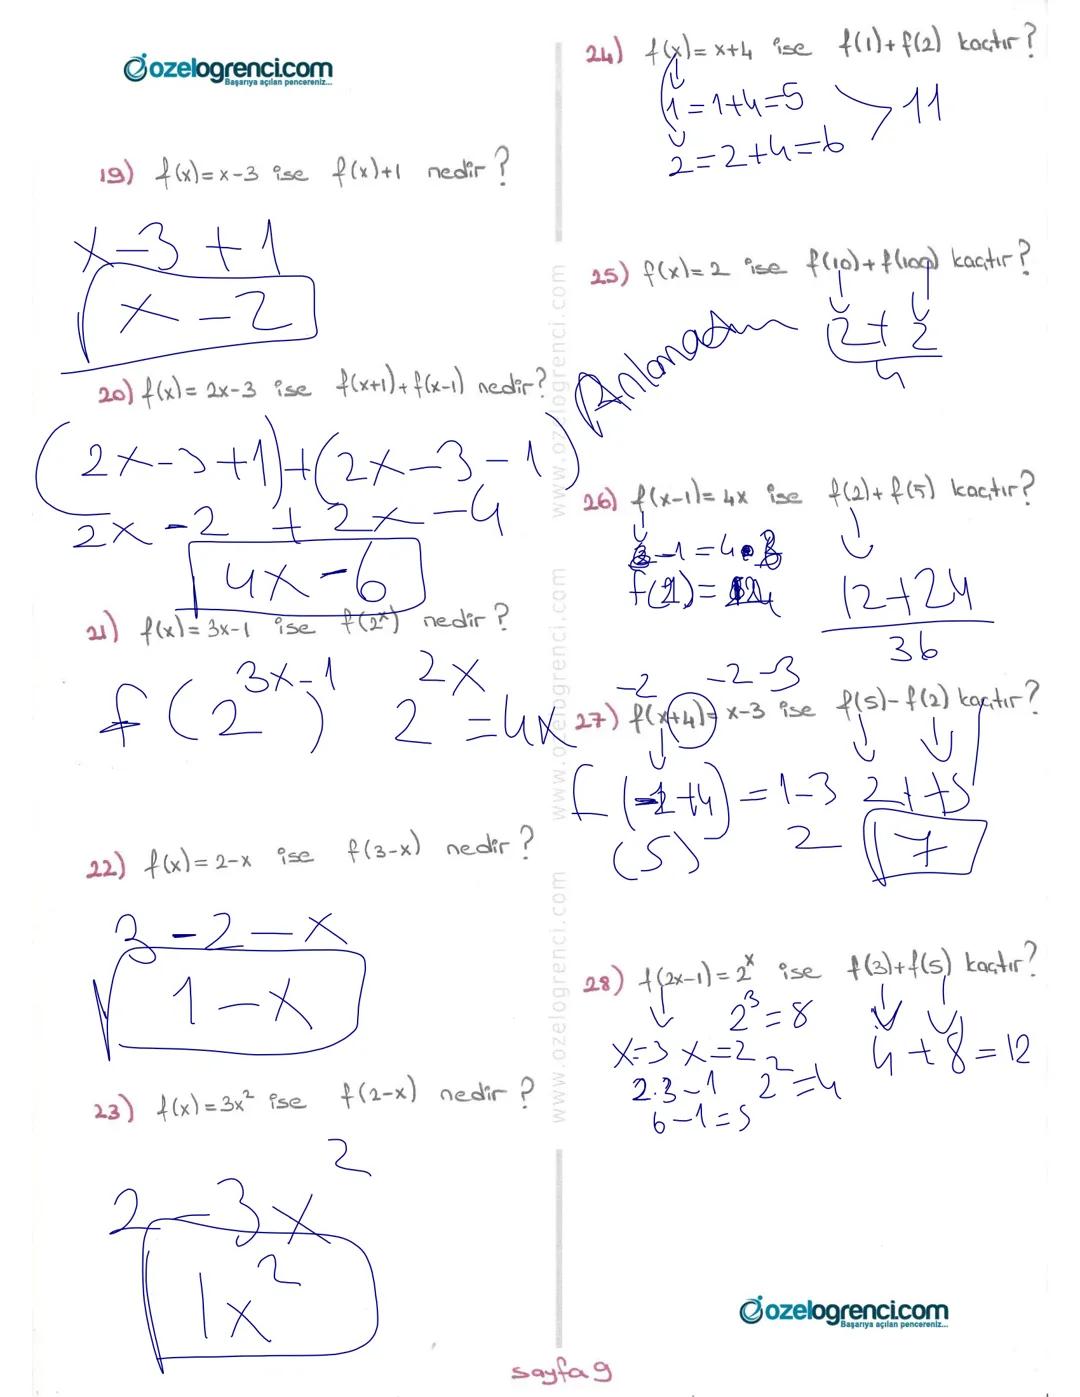 ozelogrenci.com
Başarıya açılan pencereniz...
19) f(x)= x-3 ise f(x)+1 nedir ?
x-3 +1
x-2
20) f(x)= 2x-3 ise f(x+1)+f(x-1) nedir?
(2x-3+1)+(2x-3-1)
2x-2 + 2x-4
4x-6
21) f(x)= 3x-1 ise f(2ˣ) nedir ?
f(2^3x-1) 2^2x =4x
22) f(x)= 2-x ise f(3-x) nedir ?
3-2-x
1-x
23) f(x)=3x² ise f(2-x) nedir ?
2-3x²
1x²
24) f(x)= x+4 ise f(1)+f(2) kaçtır ?
1=1+4=5
2=2+4=6
> 11
25) f(x)= 2 ise f(10)+f(100) kaçtır ?
2+2
4
Anlamadım
26) f(x-1)= 4x ise f(2)+ f(5) kaçtır?
12+24
36
-2 -2-3
27) f(x+4)= x-3 ise f(5)-f(2) kaçtır ?
=1-3 2++5
(5) 2 7
28) f(2x-1)= 2ˣ ise f(3)+f(5) kaçtır?
2³=8
x=3 x=2 4+8=12
2.3-1 2²=4
6-1=5
www.ozelogrenci.com www.ozelogrenci.com www.ozelogrenci.com
ozelogrenci.com
Başarıya açılan pencereniz...
sayfa 9